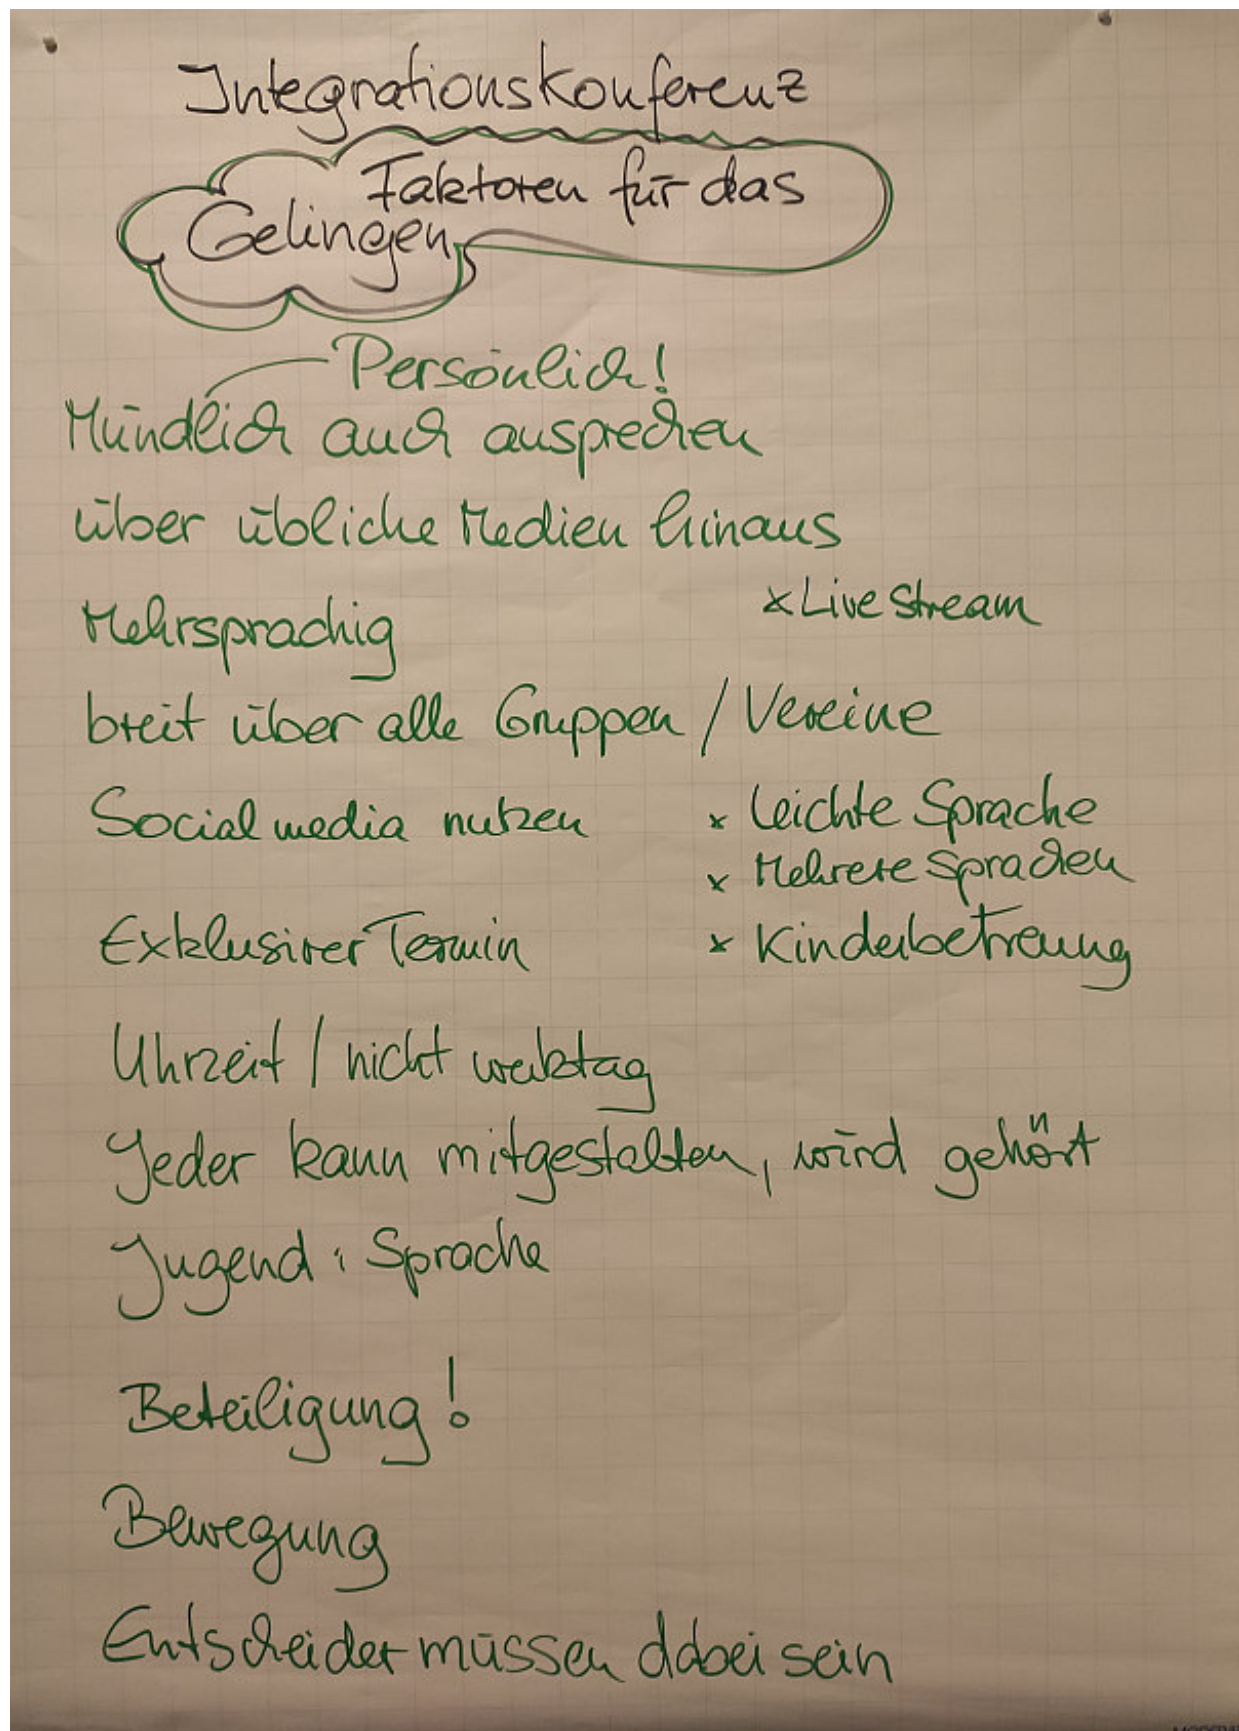 Integrationskonferenz
Faktoren für das
Gelingen
Persönlich!
Mündlich auch ausprechen
über übliche Medien hinaus
x Live Stream
Mehrsprachig
breit über alle Gruppen / Vereine
Social media nutzen
x leichte Sprache
x Mehrere Sprachen
Exklusiver Termin
x Kinderbetreuung
Uhrzeit / nicht werktag
Jeder kann mitgestalten, wird gehört
Jugend: Sprache
Beteiligung!
Bewegung
Entscheider müssen dabei sein